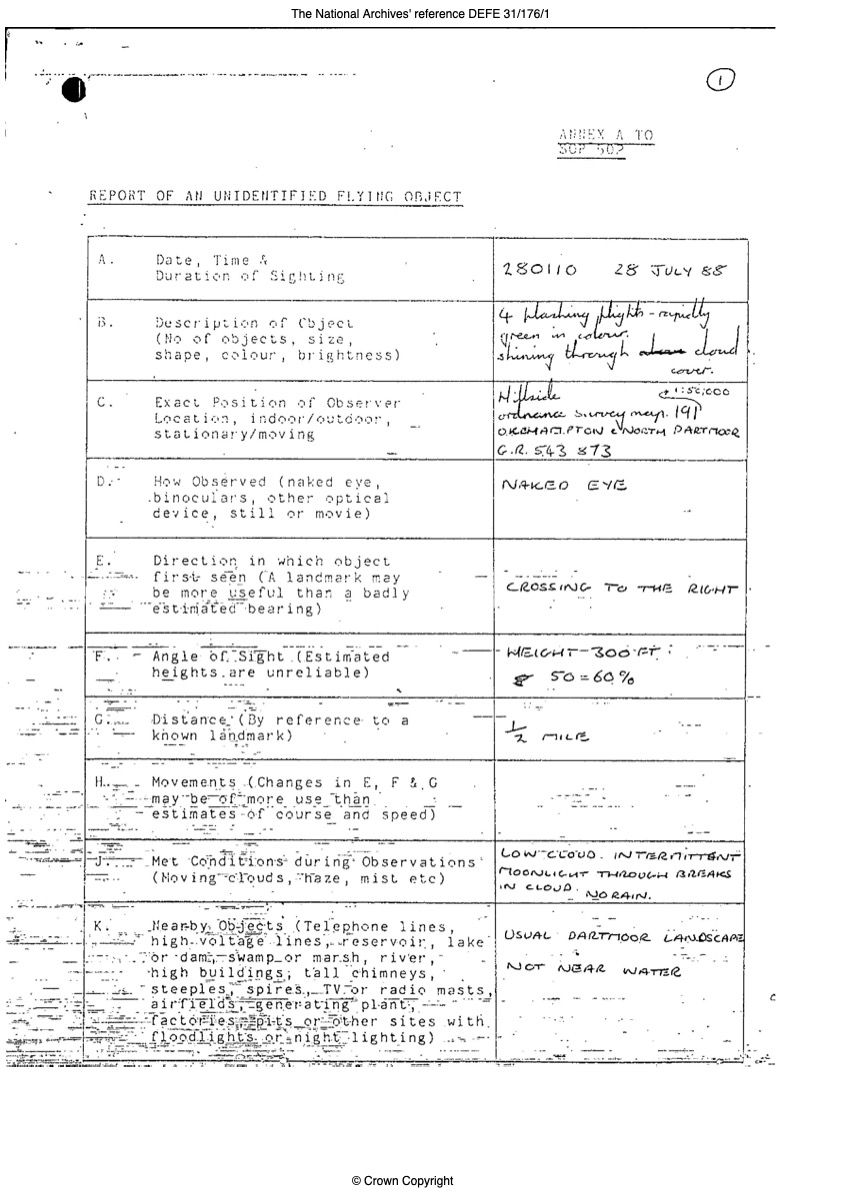 The National Archives' reference DEFE 31/176/1
1
ANNEX A TO
SOP 502
REPORT OF AN UNIDENTIFIED FLYING OBJECT
A. Date, Time &
Duration of Sighting
280110 28 JULY 88
B. Description of Object
(No of objects, size,
shape, colour, brightness)
4 flashing lights - rapidly
green in colour.
shining through cloud
cover.
C. Exact Position of Observer
Location, indoor/outdoor,
stationary/moving
Hillside 1:50,000
ordnance survey map. 191
OKEHAMPTON & NORTH DARTMOOR
G.R. 543 873
D. How Observed (naked eye,
binoculars, other optical
device, still or movie)
NAKED EYE
E. Direction in which object
first seen (A landmark may
be more useful than a badly
estimated bearing)
CROSSING TO THE RIGHT
F. Angle of Sight (Estimated
heights are unreliable)
HEIGHT - 300 FT.
50 = 60%
G. Distance (By reference to a
known landmark)
1/2 MILE
H. Movements (Changes in E, F & G
may be of more use than
estimates of course and speed)
J. Met Conditions during Observations
(Moving clouds, haze, mist etc)
LOW CLOUD. INTERMITTENT
MOONLIGHT THROUGH BREAKS
IN CLOUD. NO RAIN.
K. Nearby Objects (Telephone lines,
high voltage lines, reservoir, lake
or dam, swamp or marsh, river,
high buildings, tall chimneys,
steeples, spires, TV or radio masts,
airfields, generating plant,
factories, pits or other sites with
floodlights or night lighting)
USUAL DARTMOOR LANDSCAPE
NOT NEAR WATER
© Crown Copyright